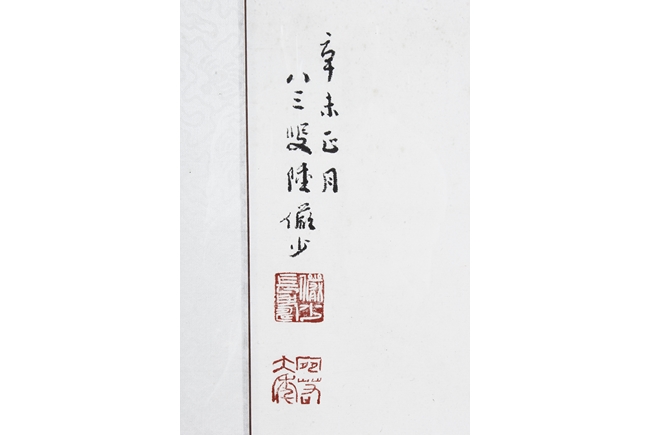 辛未正月
八三叟陸儼少
儼少